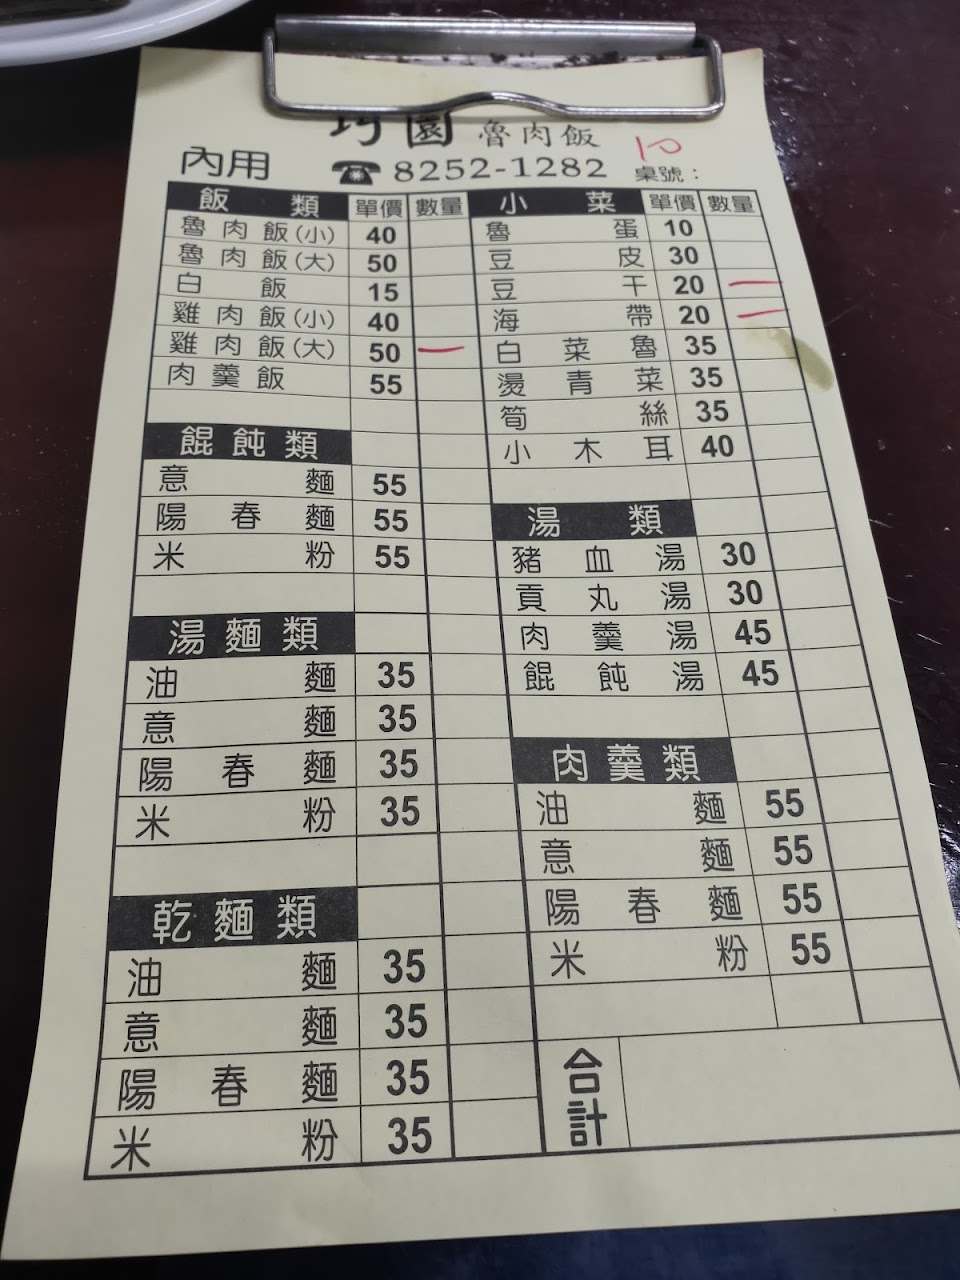 巧園 魯肉飯
內用 ☎8252-1282 桌號： 10
飯類 單價 數量
魯肉飯(小) 40
魯肉飯(大) 50
白飯 15
雞肉飯(小) 40
雞肉飯(大) 50 一
肉羹飯 55
餛飩類
意麵 55
陽春麵 55
米粉 55
湯麵類
油麵 35
意麵 35
陽春麵 35
米粉 35
乾麵類
油麵 35
意麵 35
陽春麵 35
米粉 35
小菜 單價 數量
魯蛋 10
豆皮 30
豆干 20 一
海帶 20 一
白菜魯 35
燙青菜 35
筍絲 35
小木耳 40
湯類
豬血湯 30
貢丸湯 30
肉羹湯 45
餛飩湯 45
肉羹類
油麵 55
意麵 55
陽春麵 55
米粉 55
合計